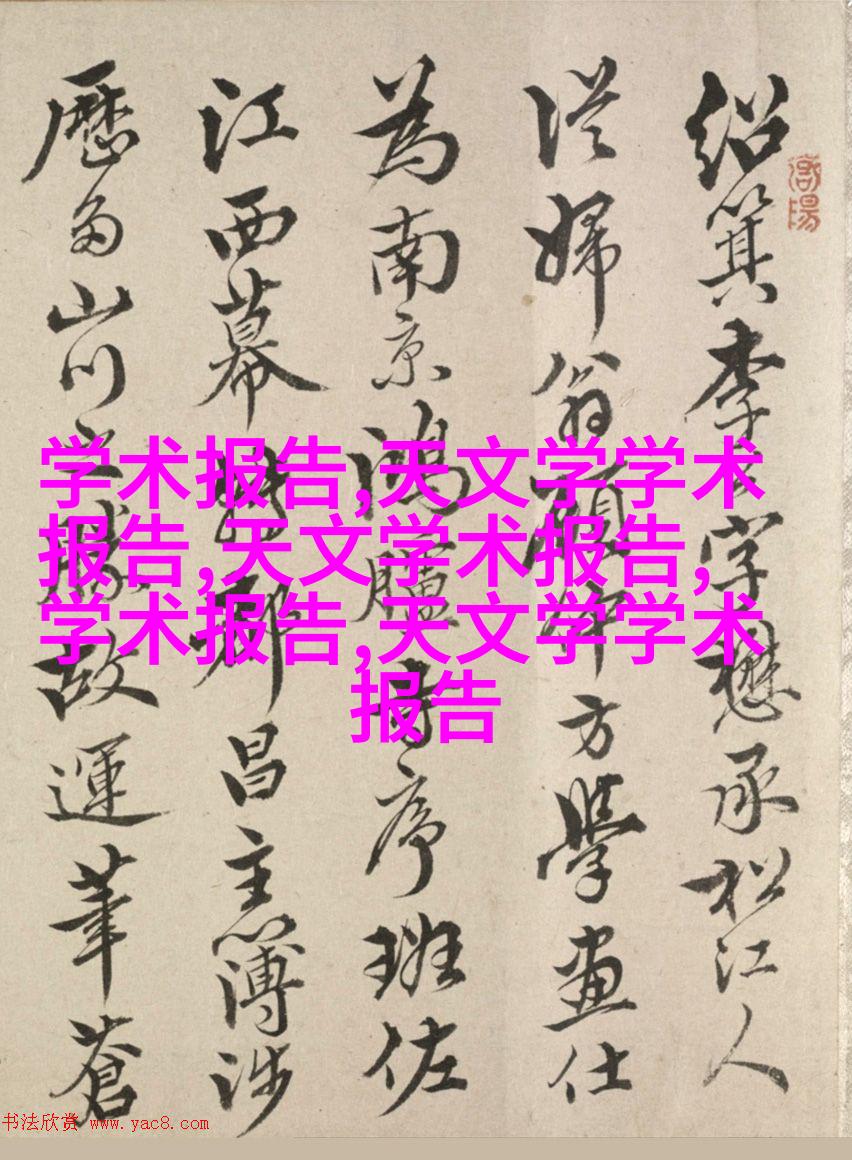 紹箕李字懋承松江人
從婦翁顧仲方學畫仕
為南京鴻臚寺序班佐
江西幕昌主簿涉
歷多山川之勝故運筆蒼
学术报告,天文学学术
报告,天文学术报告,
学术报告,天文学学术
报告
书法欣赏 www.yac8.com